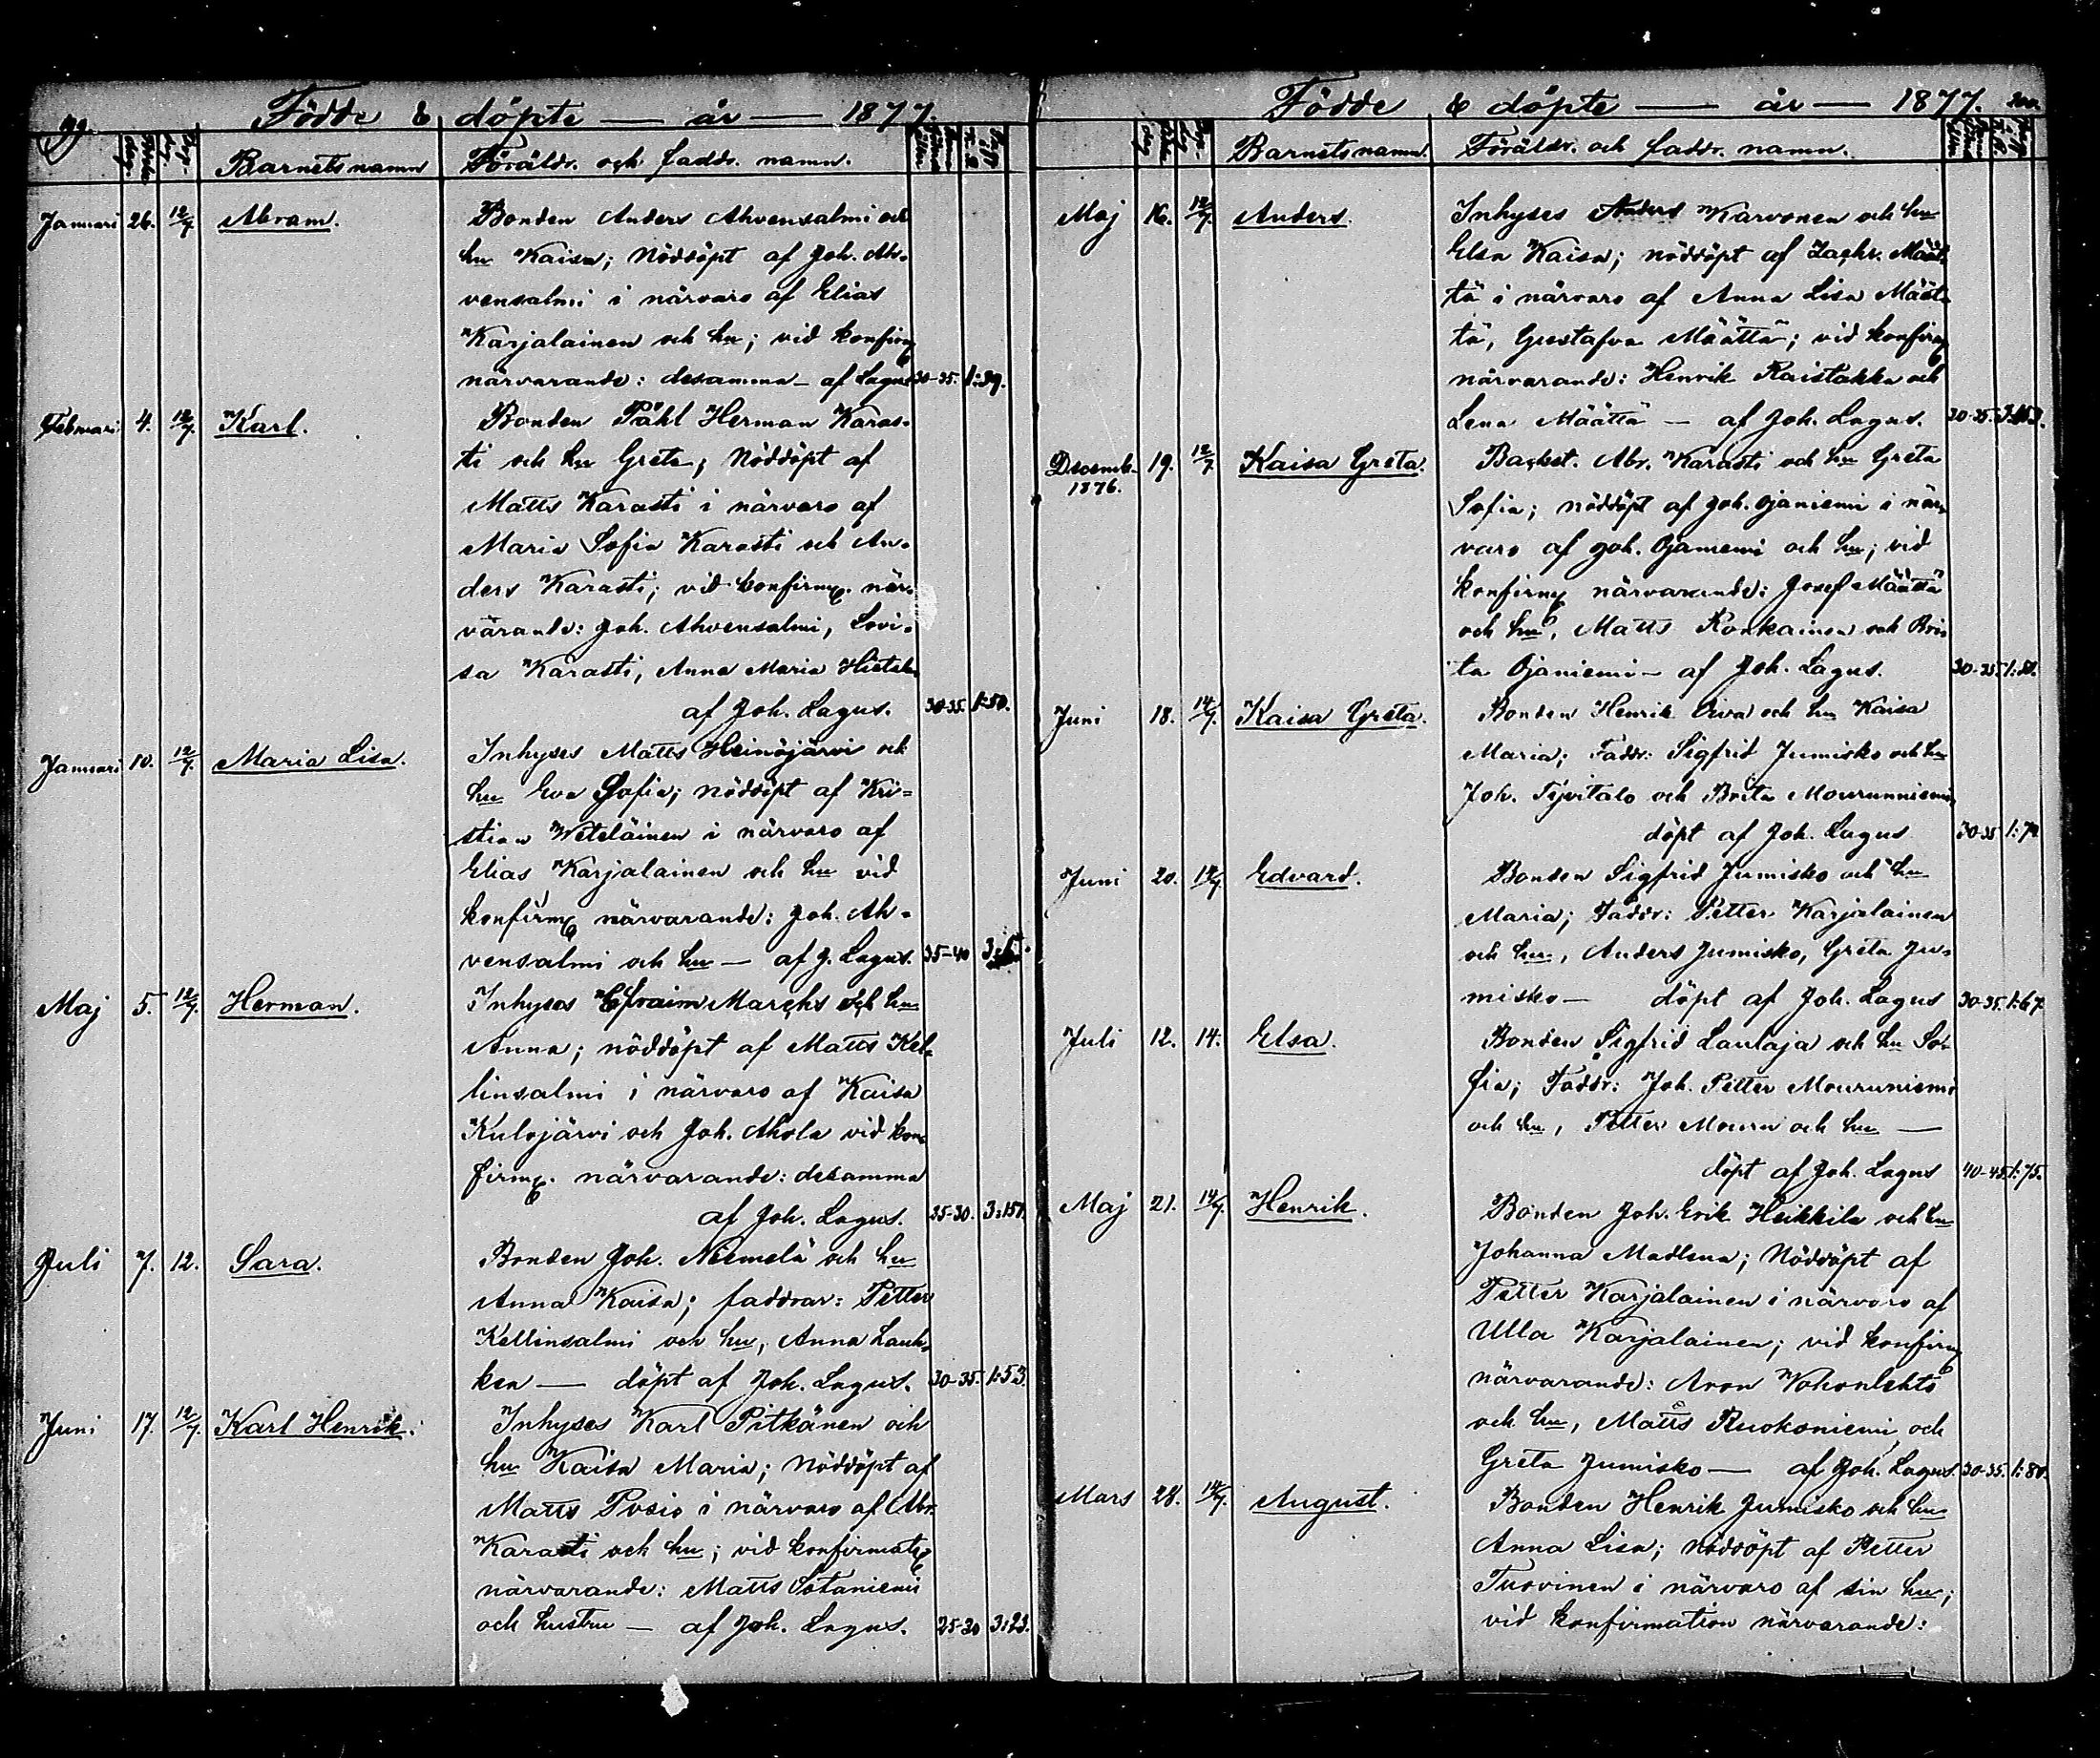 199.
Födde & döpte — år — 1877.
Barnets namn Föräldr. och faddr. namn.
Januari 26. 12/7. Abram. Bonden Anders Ahvensalmi och
hu Kaisa; Nöddöpt af Joh. Ah-
vensalmi i närvaro af Elias
Karjalainen och hu; vid konfirm
närvarande: desamma — af Lagus 30-35. 1:39.
Februari 4. 12/7. Karl. Bonden Påhl Herman Karas-
ti och hu Greta; Nöddöpt af
Matts Karasti i närvaro af
Maria Sofia Karasti och An-
ders Karasti; vid konfirm. när-
varande: Joh. Ahvensalmi, Lovi-
sa Karasti, Anna Maria Hietala
af Joh. Lagus. 30-35. 1:50.
Januari 10. 12/7. Maria Lisa. Inhyses Matts Heinojärvi och
hu Eva Sofia; nöddöpt af Kri-
stian Weteläinen i närvaro af
Elias Karjalainen och hu vid
konfirm närvarande: Joh. Ah-
vensalmi och hu — af J. Lagus. 35-40
Maj 5. 12/7. Herman. Inhyses Efraim Marchs och hu
Anna; nöddöpt af Matts Kel-
linsalmi i närvaro af Kaisa
Kulojärvi och Joh. Ahola vid kon-
firm. närvarande: desamma
af Joh. Lagus. 25-30. 3:157.
Juli 7. 12. Sara. Bonden Joh. Niemelä och hu
Anna Kaisa; faddrar: Petter
Kellinsalmi och hu, Anna Lauk-
ken — döpt af Joh. Lagus. 30-35. 1:53.
Juni 17. 12/7. Karl Henrik. Inhyses Karl Pitkänen och
hu Kaisa Maria; Nöddöpt af
Matts Posio i närvaro af Abr.
Karasti och hu; vid konfirmat
närvarande: Matts Sotaniemi
och hustru — af Joh. Lagus. 25-30 3:23.
200.
Födde & döpte — år — 1877.
Barnets namn. Föräldr. och faddr. namn.
Maj 16. 12/7. Anders. Inhyses Anders Karvonen och hu
Elsa Kaisa; nöddöpt af Zachr. Määt-
tä i närvaro af Anna Lisa Määt-
tä, Gustafva Määttä; vid konfirm
närvarande: Henrik Raistakka och
Lena Määttä — af Joh. Lagus. 30-35.
Decemb. 19. 12/7. Kaisa Greta. Backst. Abr. Karasti och hu Greta
1876.
Sofia; nöddöpt af Joh. Ojaniemi i när-
varo af Joh. Ojaniemi och hu; vid
konfirm närvarande: Josef Määttä
och hu, Matts Ronkainen och Bri-
ta Ojaniemi — af Joh. Lagus. 30-35.
Juni 18. 14/7. Kaisa Greta. Bonden Henrik Oiva och hu Kaisa
Maria; Faddr: Sigfrid Jumisko och hu
Joh. Tyvitalo och Brita Mourunniemi,
döpt af Joh. Lagus 30-35
Juni 20. 14/7. Edvard. Bonden Sigfrid Jumisko och hu
Maria; Faddr: Petter Karjalainen
och hu, Anders Jumisko, Greta Ju-
misko — döpt af Joh. Lagus 30-35. 1:67.
Juli 12. 14. Elsa. Bonden Sigfrid Laulaja och hu So-
fia; Faddr: Joh. Petter Mouruniemi
och hu, Petter Mouru och hu —
döpt af Joh. Lagus 40-45. 1:75.
Maj 21. 14/7. Henrik. Bonden Joh. Erik Heikkila och hu
Johanna Madlena; Nöddöpt af
Petter Karjalainen i närvaro af
Ulla Karjalainen; vid konfirm
närvarande: Aron Vohonlehto
och hu, Matts Ruokoniemi, och
Greta Jumisko — af Joh. Lagus. 30-35. 1:80.
Mars 28. 14/7. August. Bonden Henrik Jumisko och hu
Anna Lisa; nöddöpt af Petter
Tuovinen i närvaro af sin hu;
vid konfirmation närvarande: